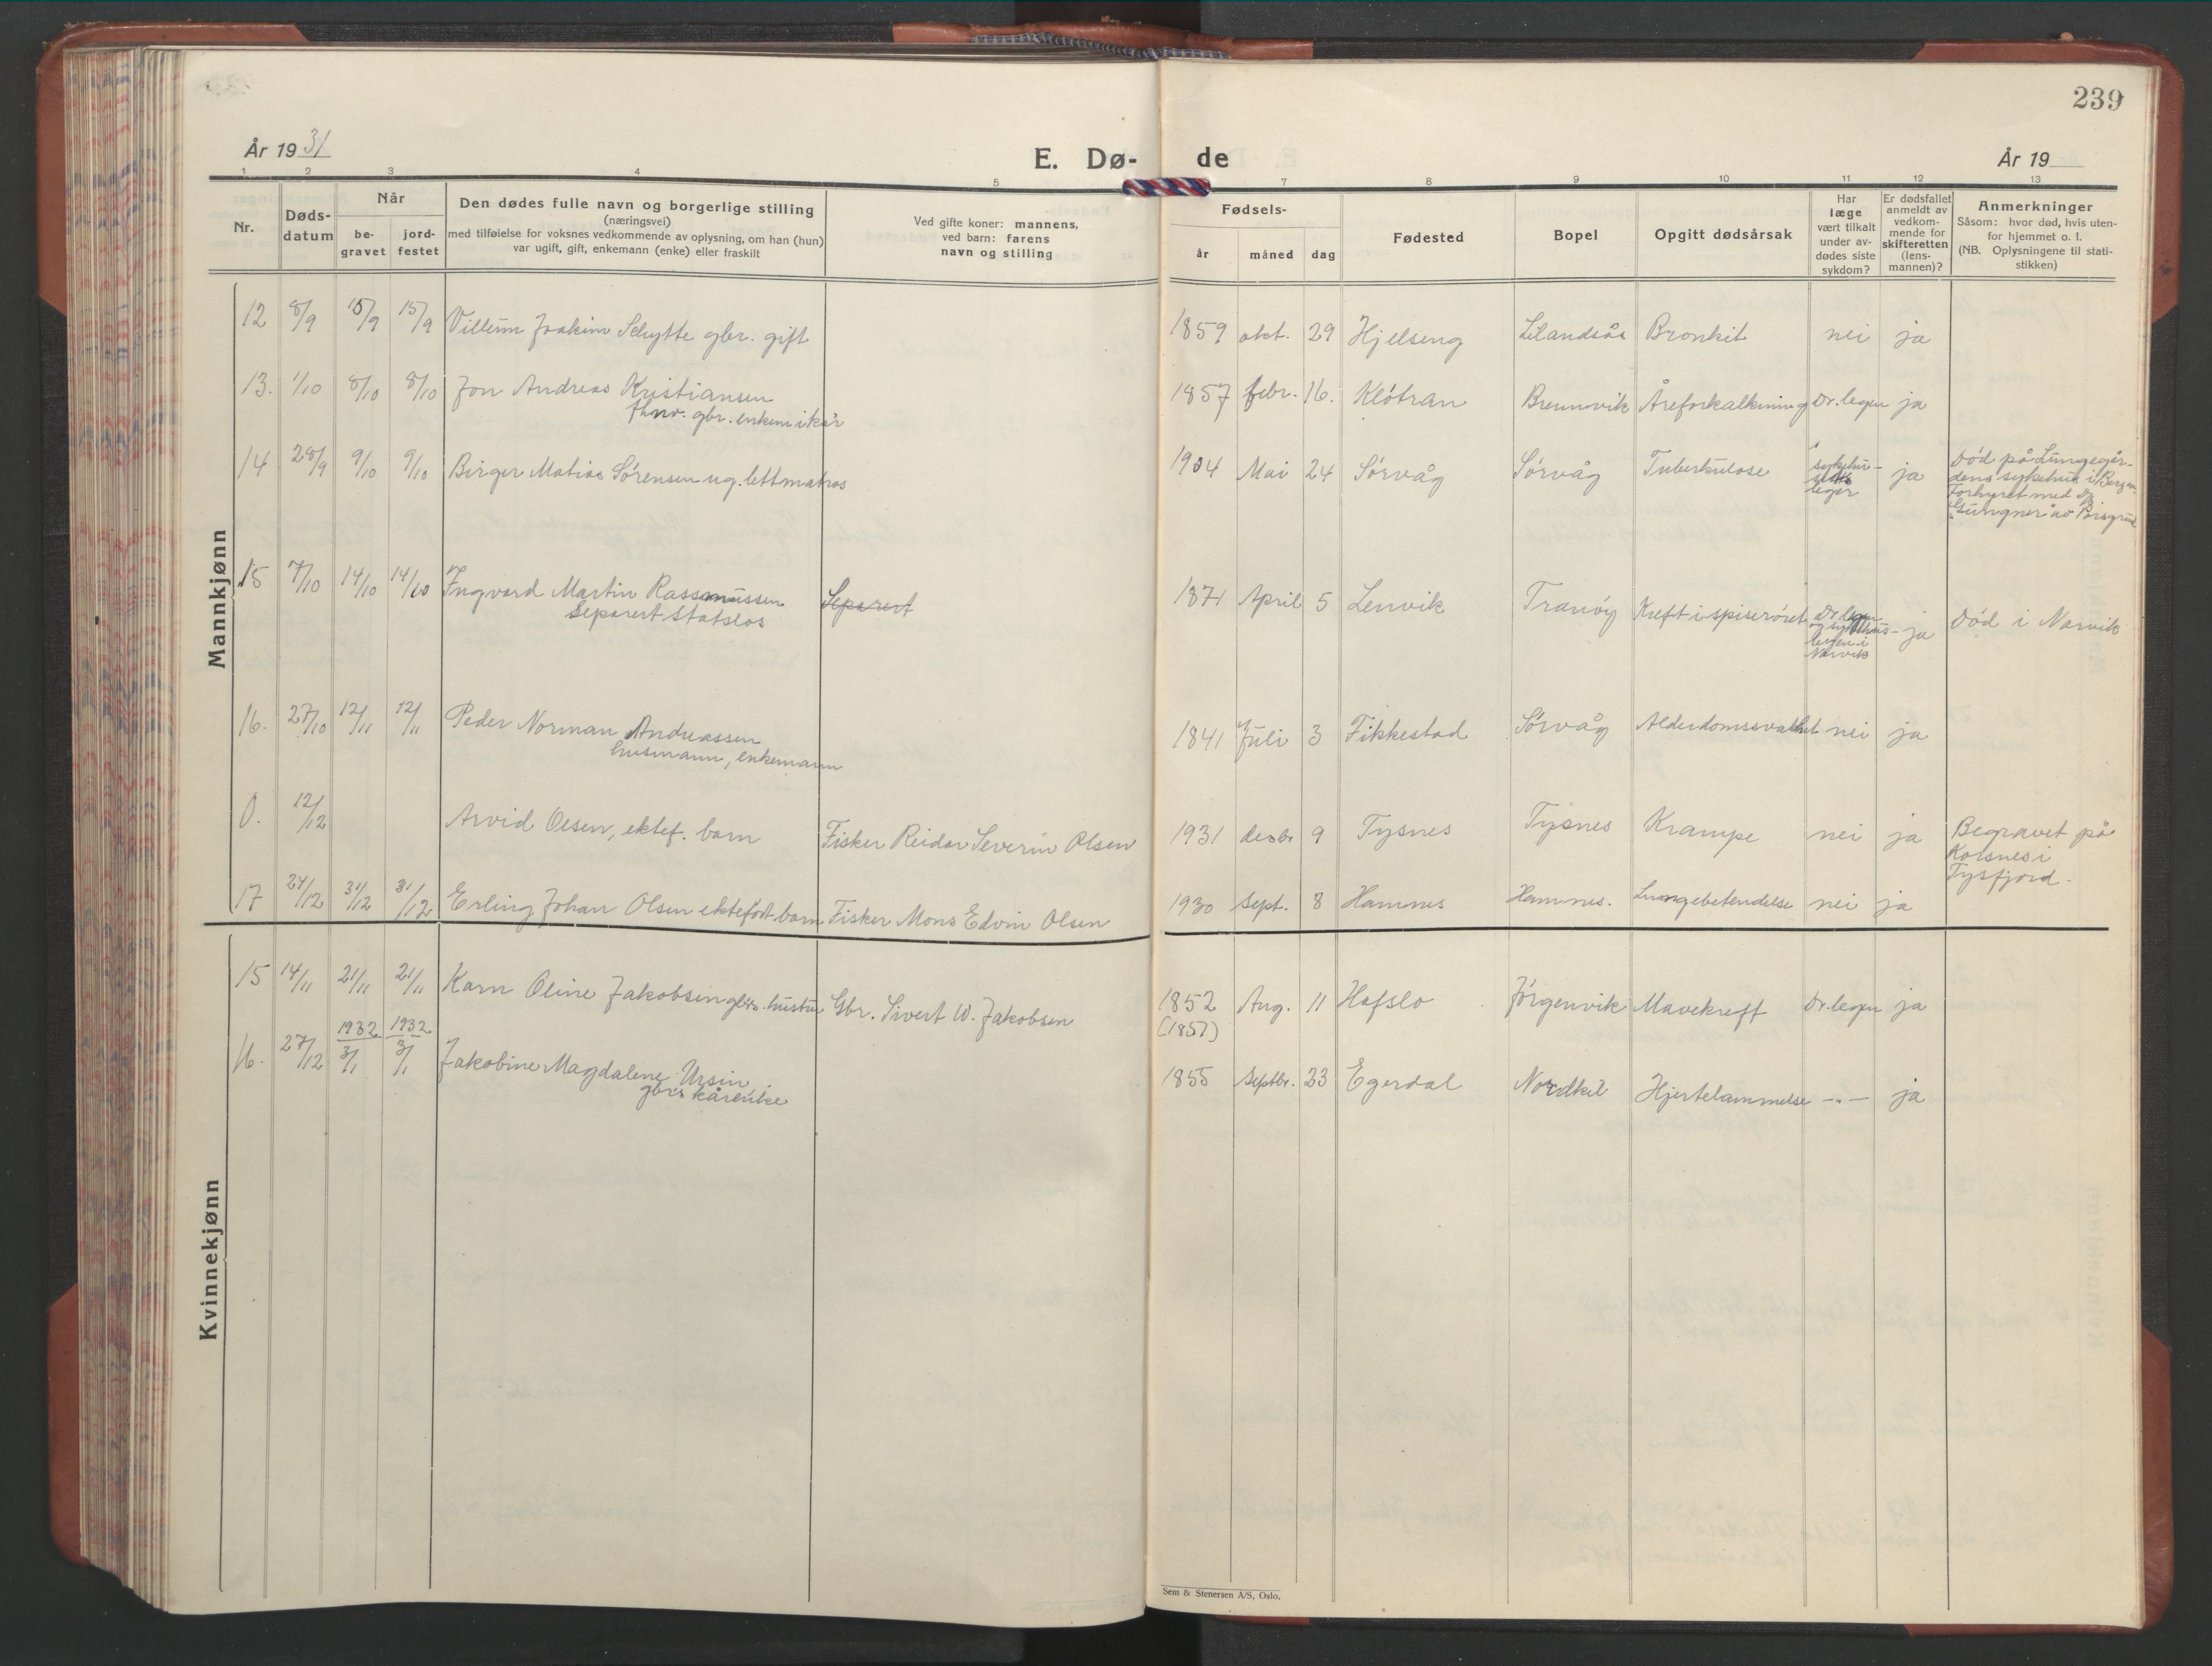 239
År 1931
E. Dø- de
År 19
1 2 3 4 5 7 8 9 10 11 12 13
Nr.
Døds-
datum
Når
be-
gravet
jord-
festet
Den dødes fulle navn og borgerlige stilling
(næringsvei)
med tilføielse for voksnes vedkommende av oplysning, om han (hun)
var ugift, gift, enkemann (enke) eller fraskilt
Ved gifte koner: mannens,
ved barn: farens
navn og stilling
Fødsels-
år måned dag
Fødested
Bopel
Opgitt dødsårsak
Har
læge
vært tilkalt
under av-
dødes siste
sykdom?
Er dødsfallet
anmeldt av
vedkom-
mende for
skifteretten
(lens-
mannen)?
Anmerkninger
Såsom: hvor død, hvis uten-
for hjemmet o. l.
(NB. Oplysningene til stati-
stikken)
Mannkjønn
12 8/9 15/9 15/9 Villum Joakim Schytte gbr. gift 1859 okt. 29 Hjelseng Lilandsås Bronkit nei ja
13. 1/10 8/10 8/10 Jon Andreas Kristiansen 1857 febr. 16. Klötran Brennvik Åreforkalkning Dr. legen ja
fhnv. gbr. enkem i kår
14 28/9 9/10 9/10 Birger Matias Sörensen ug. lettmatros 1904 Mai 24 Sörvåg Sörvåg Tuberkulose sykehus- leger ja Död på Lungegår-
dens sykehus i Bergen.
Forhyret med D/S
"Gungner" av Porsgrund
15 7/10 14/10 14/10 Ingvard Martin Rassmussen Separert 1871 April 5 Lenvik Tranöy Kreft i spiseröret Dr. legen
og sykehus-
legen i
Narvik ja Död i Narvik
Separert Statslos
16. 27/10 12/11 12/11 Peder Norman Andreassen 1841 Juli 3 Fikkestad Sörvåg Alderdomssvakhet nei ja
husmann, enkemann
0. 12/12 Arvid Olsen, ektef. barn Fisker Reidar Severin Olsen 1931 desbr 9 Tysnes Tysnes Krampe nei ja Begravet på
Korsnes i
Tysfjord.
17 24/12 31/12 31/12 Erling Johan Olsen ektefödt barn Fisker Mons Edvin Olsen 1930 Sept. 8 Hamnes Hamnes. Lungebetendelse nei ja
Kvinnekjønn
15 14/11 21/11 21/11 Karn Oline Jakobsen gbrs. hustru Gbr. Sivert W. Jakobsen 1852 Aug. 11 Hafslo Jörgenvik Mavekreft Dr. legen ja
(1857)
16. 27/12 1932 3/1 1932 3/1 Jakobine Magdalene Ursin 1855 Septbr. 23 Egerdal Nordkil Hjertelammelse -"- ja
gbr's kårenke
Sem & Stenersen A/S, Oslo.